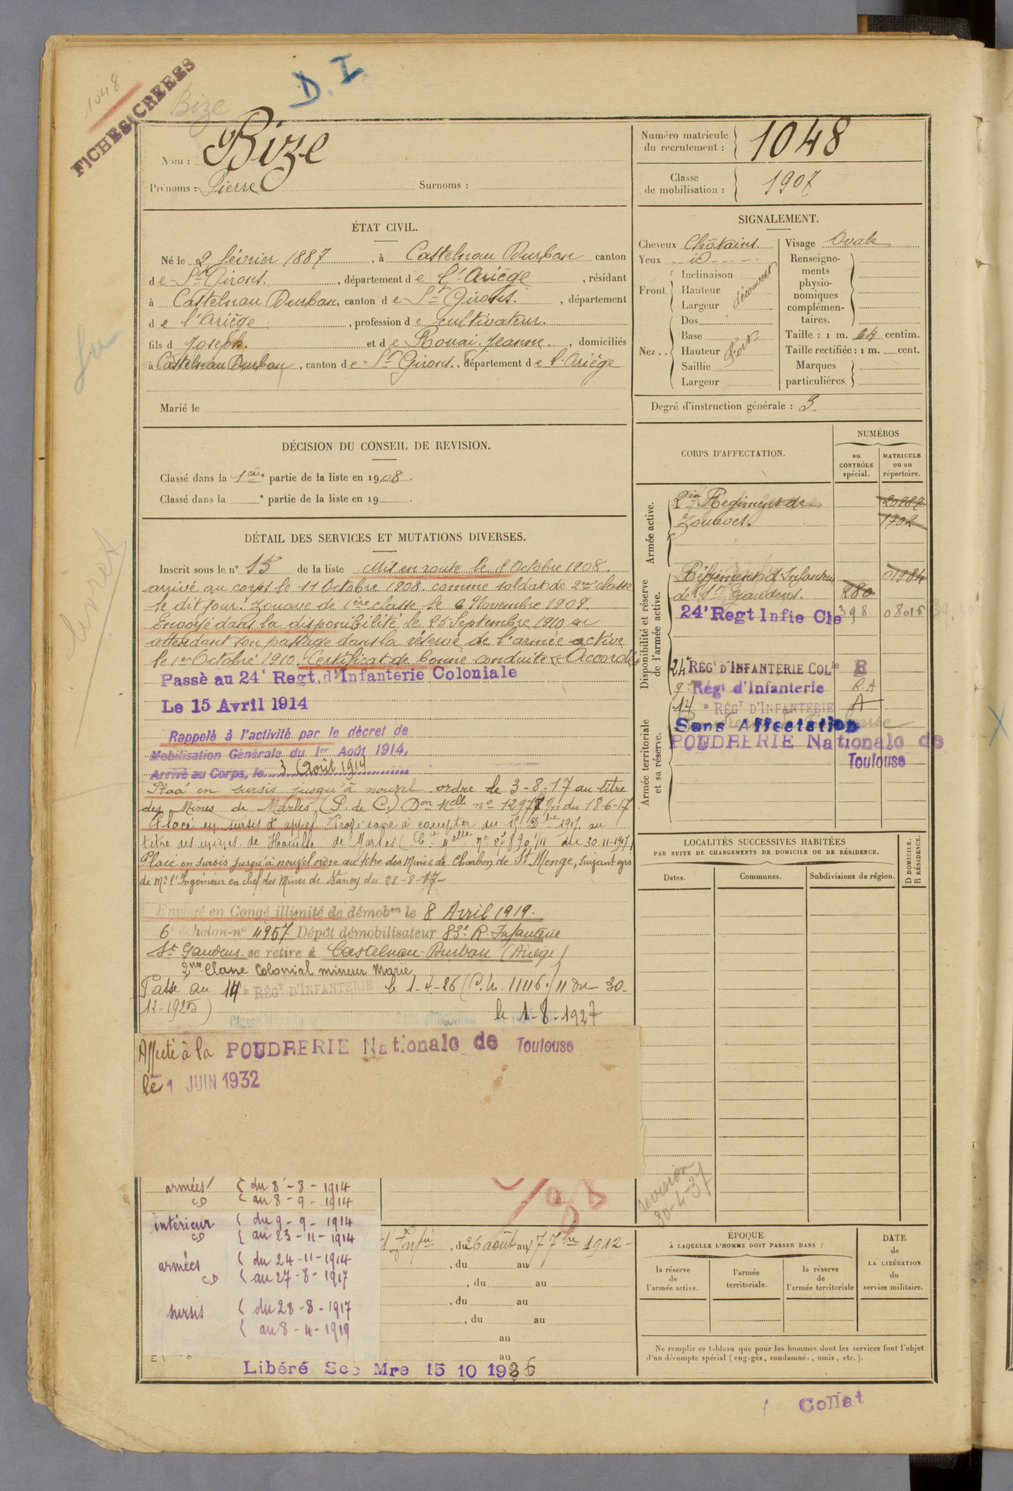 1048
FICHES CRÉÉES
Bize
D. I
Nom : Bize
Prénoms : Pierre Surnoms :
Numéro matricule du recrutement : 1048
Classe de mobilisation : 1907
ÉTAT CIVIL.
Né le 2 février 1887, à Castelnau Durban canton
de St Girons, département de l'Ariège, résidant
à Castelnau Durban, canton de St Girons, département
de l'Ariège, profession de cultivateur
fils de Joseph et de Rouai Jeanne, domiciliés
à Castelnau Durban, canton de St Girons, département de l'Ariège
Marié le
SIGNALEMENT.
Cheveux Châtains
Yeux id
Front. Inclinaison
Hauteur
Largeur
Nez.. Dos
Base
Hauteur
Saillie
Largeur
Visage Ovale
Renseigne-
ments
physio-
nomiques
complémen-
taires.
Taille : 1 m. 64 centim.
Taille rectifiée : 1 m. cent.
Marques
particulières
Degré d'instruction générale : 3
DÉCISION DU CONSEIL DE REVISION.
Classé dans la 1ère partie de la liste en 1908
Classé dans la e partie de la liste en 19
DÉTAIL DES SERVICES ET MUTATIONS DIVERSES.
Inscrit sous le n° 15 de la liste Mis en route le 8 Octobre 1908.
arrivé au corps le 11 Octobre 1908. comme soldat de 2me classe
le dit jour. Zouave de 1ère classe le 6 Novembre 1909.
Envoyé dans la disponibilité le 25 Septembre 1910 en
attendant son passage dans la réserve de l'armée active
le 1er Octobre 1910. Certificat de bonne conduite Accordé
Passé au 24e Regt. d'Infanterie Coloniale
Le 15 Avril 1914
Rappelé à l'activité par le décret de
Mobilisation Générale du 1er Août 1914,
Arrivé au Corps, le 3 Août 1914
Placé en sursis jusqu'à nouvel ordre le 3-8-17 au titre
des Mines de Marles (P. de C.)
Placé en sursis d'appel
titre des mines de Houille de Marles
Placé en sursis jusqu'à nouvel ordre au titre des Mines de Charbon de St Menge,
de Mr l'Ingénieur en chef des Mines de Nancy du 28-8-17
Envoyé en Congé illimité de démobon le 8 Avril 1919.
6e échelon n° 4957 Dépôt démobilisateur 83e R. Infanterie
St Gaudens se retire à Castelnau-Durban (Ariège)
2me Classe Colonial mineur Marié
Passé au 14e RÉGT D'INFANTERIE le 1-4-26 (C.M. 11116/11 du 30-
12-1925)
le 1-8-1927
Affecté à la POUDRERIE Nationale de Toulouse
le 1 JUIN 1932
armées du 8-8-1914
CD au 8-9-1914
intérieur du 9-9-1914
CD au 23-11-1914
armées du 24-11-1914
CD au 27-8-1917
sursis du 28-8-1917
au 8-4-1919
, du 26 août au 7 7bre 1912
, du au
, du au
, du au
, du au
au
au
Libéré Sce Mre 15 10 1936
CORPS D'AFFECTATION.
NUMÉROS
au CONTRÔLE spécial.
MATRICULE ou au répertoire.
Armée active.
2ème Régiment de
Zouaves.
20787
1702
Disponibilité et réserve de l'armée active.
Régiment d'Infanterie
de St Gaudens. 280
24e Regt Infie Cle 398 08015
24e RÉGT D'INFANTERIE COLle R
9e Régt d'Infanterie R.A
14e RÉGT D'INFANTERIE A
Armée territoriale et sa réserve.
Sans Affectation
POUDRERIE Nationale de
Toulouse
LOCALITÉS SUCCESSIVES HABITÉES
PAR SUITE DE CHANGEMENTS DE DOMICILE OU DE RÉSIDENCE.
Dates. Communes. Subdivisions de région. D DOMICILE. R RÉSIDENCE.
revision
30-4-37
ÉPOQUE
À LAQUELLE L'HOMME DOIT PASSER DANS :
la réserve de l'armée active.
l'armée territoriale.
la réserve de l'armée territoriale
DATE DE LA LIBÉRATION du service militaire.
Ne remplir ce tableau que pour les hommes dont les services font l'objet
d'un décompte spécial (engagés, condamnés, omis, etc.).
Collat